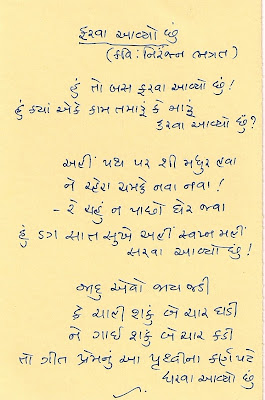 ફરવા આવ્યો છું
(કવિ : નિરંજન ભગત)
હું તો બસ ફરવા આવ્યો છું !
હું ક્યાં એકે કામ તમારું કે મારું
કરવા આવ્યો છું ?
અહીં પથ પર શી મધુર હવા
ને ચહેરા ચમકે નવા નવા !
- રે ચહું ન પાછો ઘેર જવા
હું ડગ સાત સુખે અહીં સ્વપ્ન મહીં
સરવા આવ્યો છું !
જાદુ એવો જાય જડી
કે ચાહી શકું બે ચાર ઘડી
ને ગાઈ શકું બે ચાર કડી
તો ગીત પ્રેમનું આ પૃથ્વીના કર્ણપટે
ધરવા આવ્યો છું